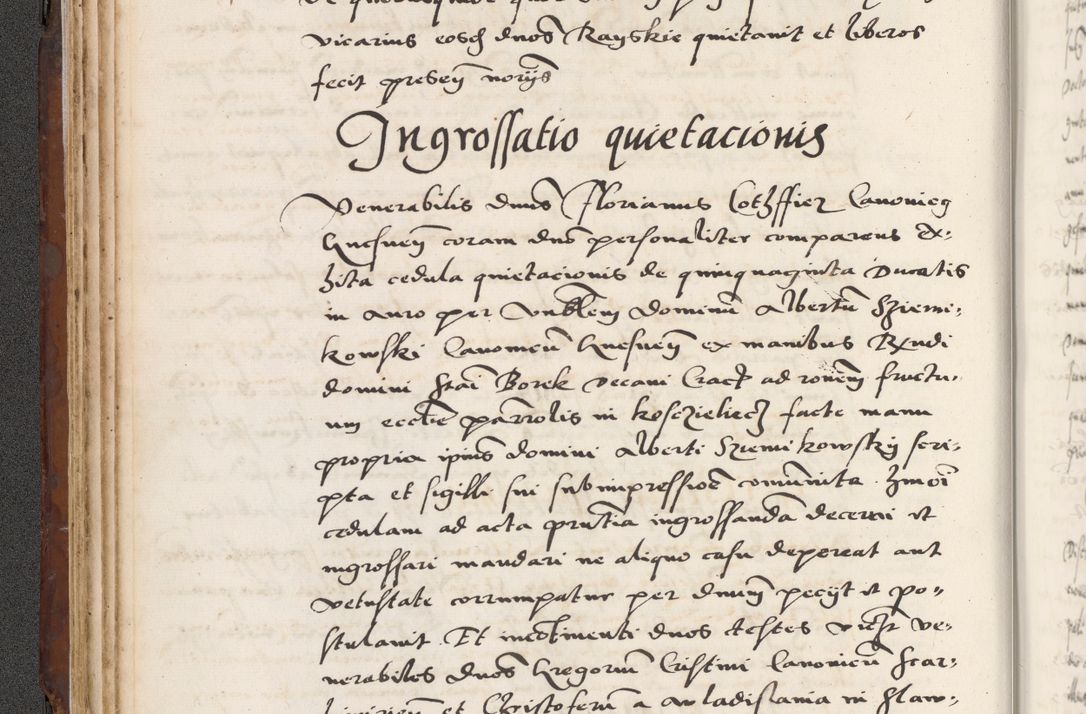 vicarius eosđ dnos Rayskie quietauit et liberos
fecit preseñ norijs
Ingrossatio quietacionis
Venerabilis dnus Florianus Cothffier Canonicꝯ
Gnesneñ coram dno personaliter comparens Ex-
hita cedula quietacionis de quinquaginta Ducatis
in auro per venblem dominū Albertū Sziemi-
kowski Canonicū Gnesneñ ex manibus Rxndi
domini Stai Borek decani Crac ad ronem fructu-
um eccłie parrolis in Kosczieliecz facte manu
propria ipius domini Alberti Sziemikowsky scri-
pta et sigilli sui subimpressioe comūnita. Hmoi
cedulam ad acta prntia ingrossandā decerni et
ingrossari mandari ne aliquo casu depereat aut
vetustate corrumpatur per dnum pecijt et po-
stulauit Et incotinenti duos testes vicz ve-
nerabiles dnos Gregoriū Cristini Canonicū Scar-
et Christoferū a Wladislauia in Slaw-